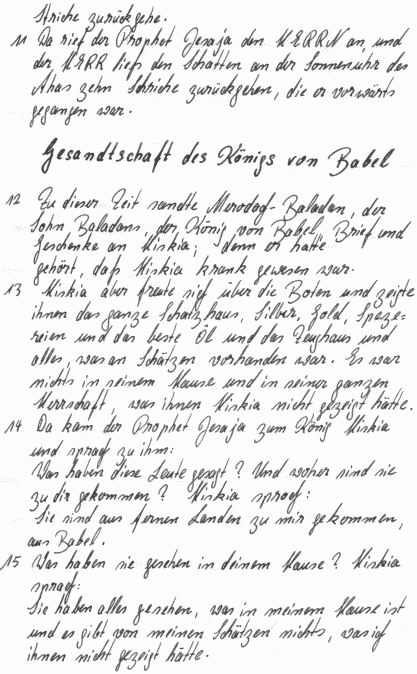 Striche zurückgehe.
11 Da rief der Prophet Jesaja den HERRN an, und
der HERR ließ den Schatten an der Sonnenuhr des
Ahas zehn Striche zurückgehen, die er vorwärts
gegangen war.
Gesandtschaft des Königs von Babel
12 Zu dieser Zeit sandte Merodach-Baladan, der
Sohn Baladans, der König von Babel, Brief und
Geschenke an Hiskia; denn er hatte
gehört, daß Hiskia krank gewesen war.
13 Hiskia aber freute sich über die Boten und zeigte
ihnen das ganze Schatzhaus, Silber, Gold, Speze-
reien und das beste Öl und das Zeughaus und
alles, was an Schätzen vorhanden war. Es war
nichts in seinem Hause und in seiner ganzen
Herrschaft, was ihnen Hiskia nicht gezeigt hätte.
14 Da kam der Prophet Jesaja zum König Hiskia
und sprach zu ihm:
Was haben diese Leute gesagt? Und woher sind sie
zu dir gekommen? Hiskia sprach:
Sie sind aus fernen Landen zu mir gekommen,
aus Babel.
15 Was haben sie gesehen in deinem Hause? Hiskia
sprach:
Sie haben alles gesehen, was in meinem Hause ist
und es gibt von meinen Schätzen nichts, was ich
ihnen nicht gezeigt hätte.